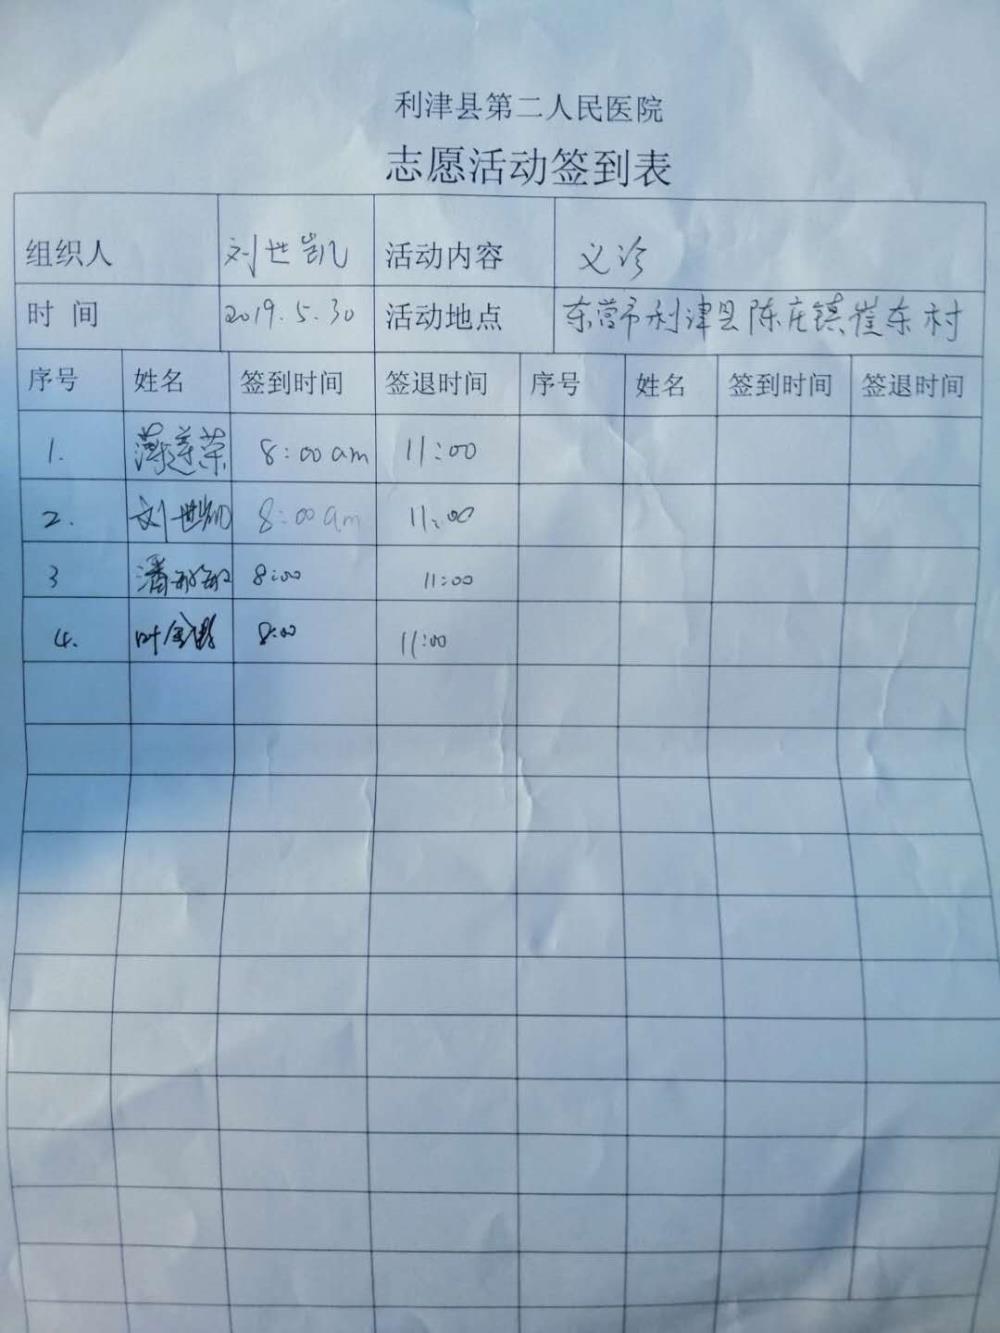 利津县第二人民医院
志愿活动签到表
组织人 刘世凯 活动内容 义诊
时 间 2019.5.30 活动地点 东营市利津县陈庄镇崔东村
序号 姓名 签到时间 签退时间 序号 姓名 签到时间 签退时间
1. 薄莲荣 8:00am 11:00
2. 刘世凯 8:00am 11:00
3 潘 8:00 11:00
4. 叶金 8:00 11:00